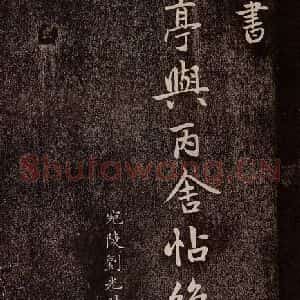 書
亭與丙舍帖
宛陵劉光
Shufawang.CN